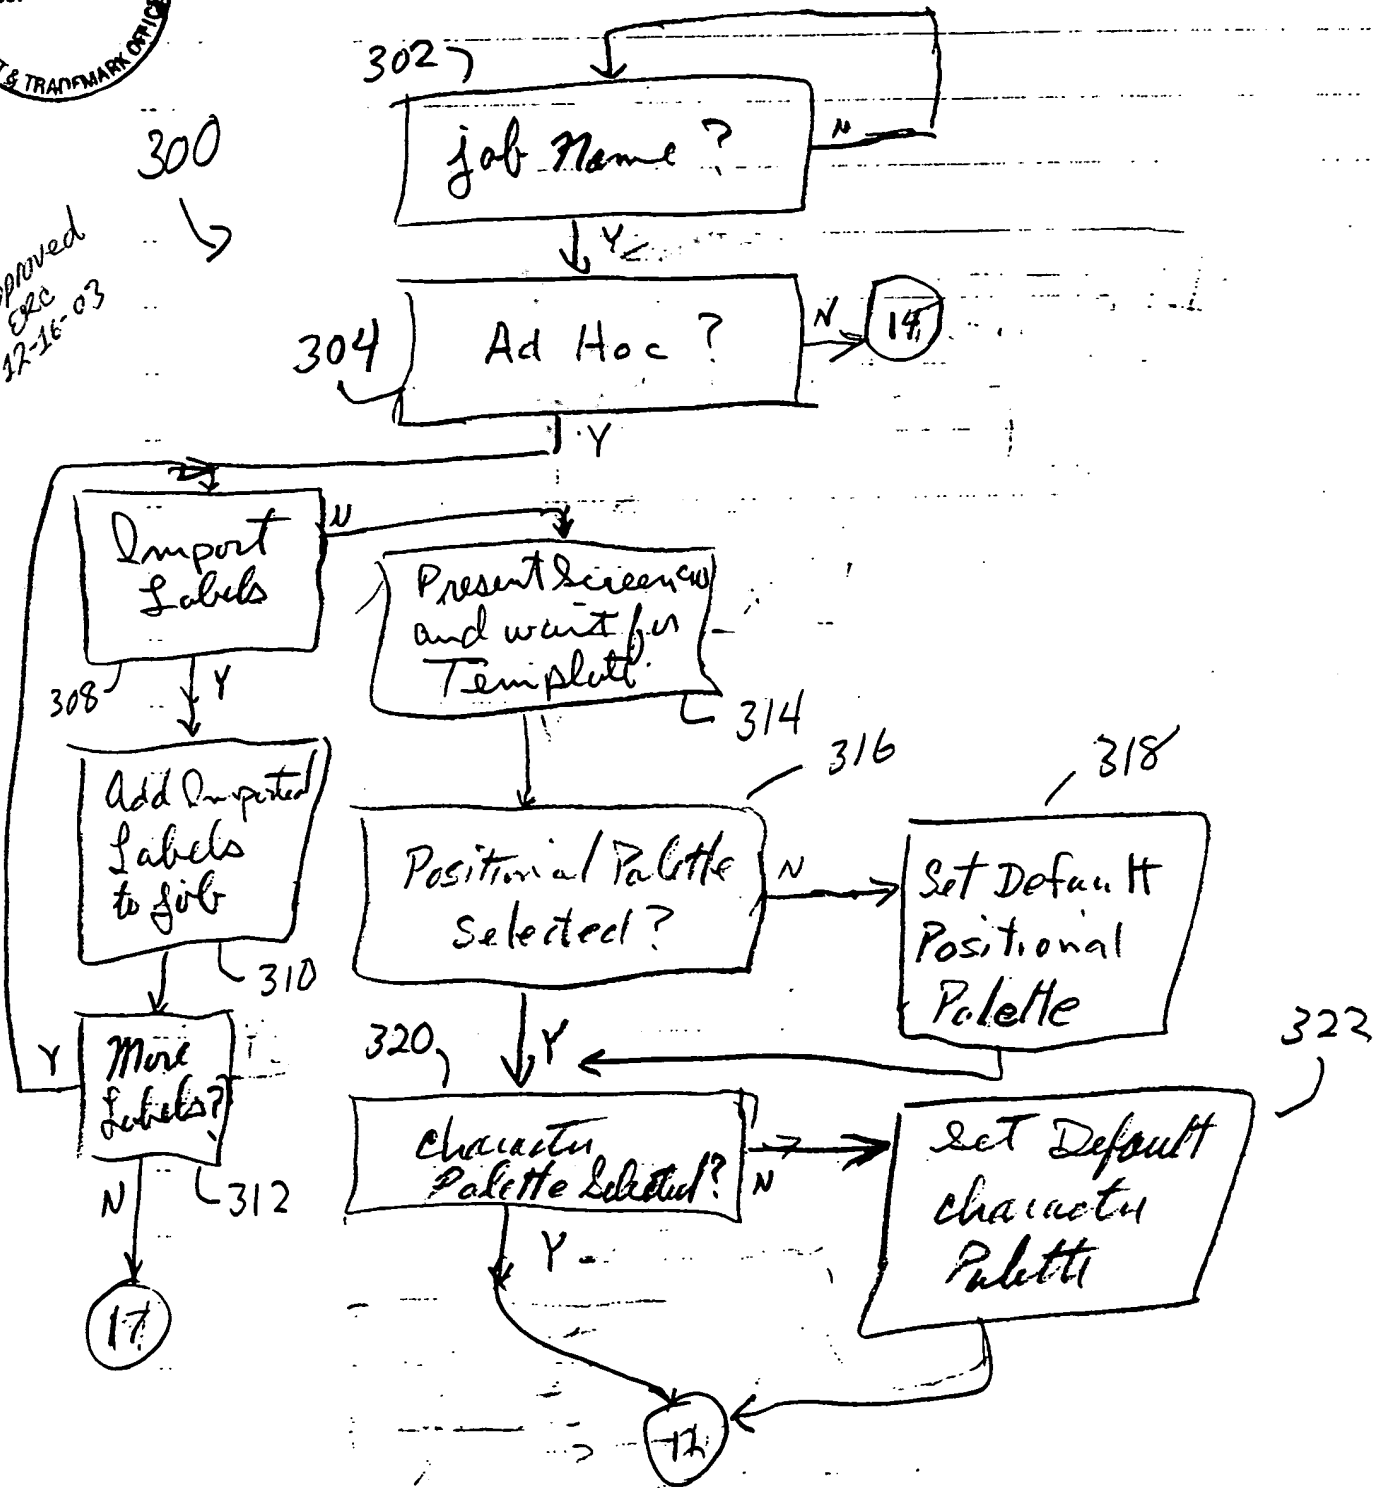 T & TRADEMARK OFFICE
302
300
job Name ?
N
Y
pproved
ERC
12-16-03
304
Ad Hoc ?
N
14
Y
Import
Labels
N
308
Y
Present Screen(s)
and wait for
Template
314
Add Imported
Labels
to job
310
316
318
Positional Palette
Selected ?
N
Set Default
Positional
Palette
Y
More
Labels?
N
312
17
320
Y
322
character
Palette Selected?
N
Set Default
character
Palette
Y
12